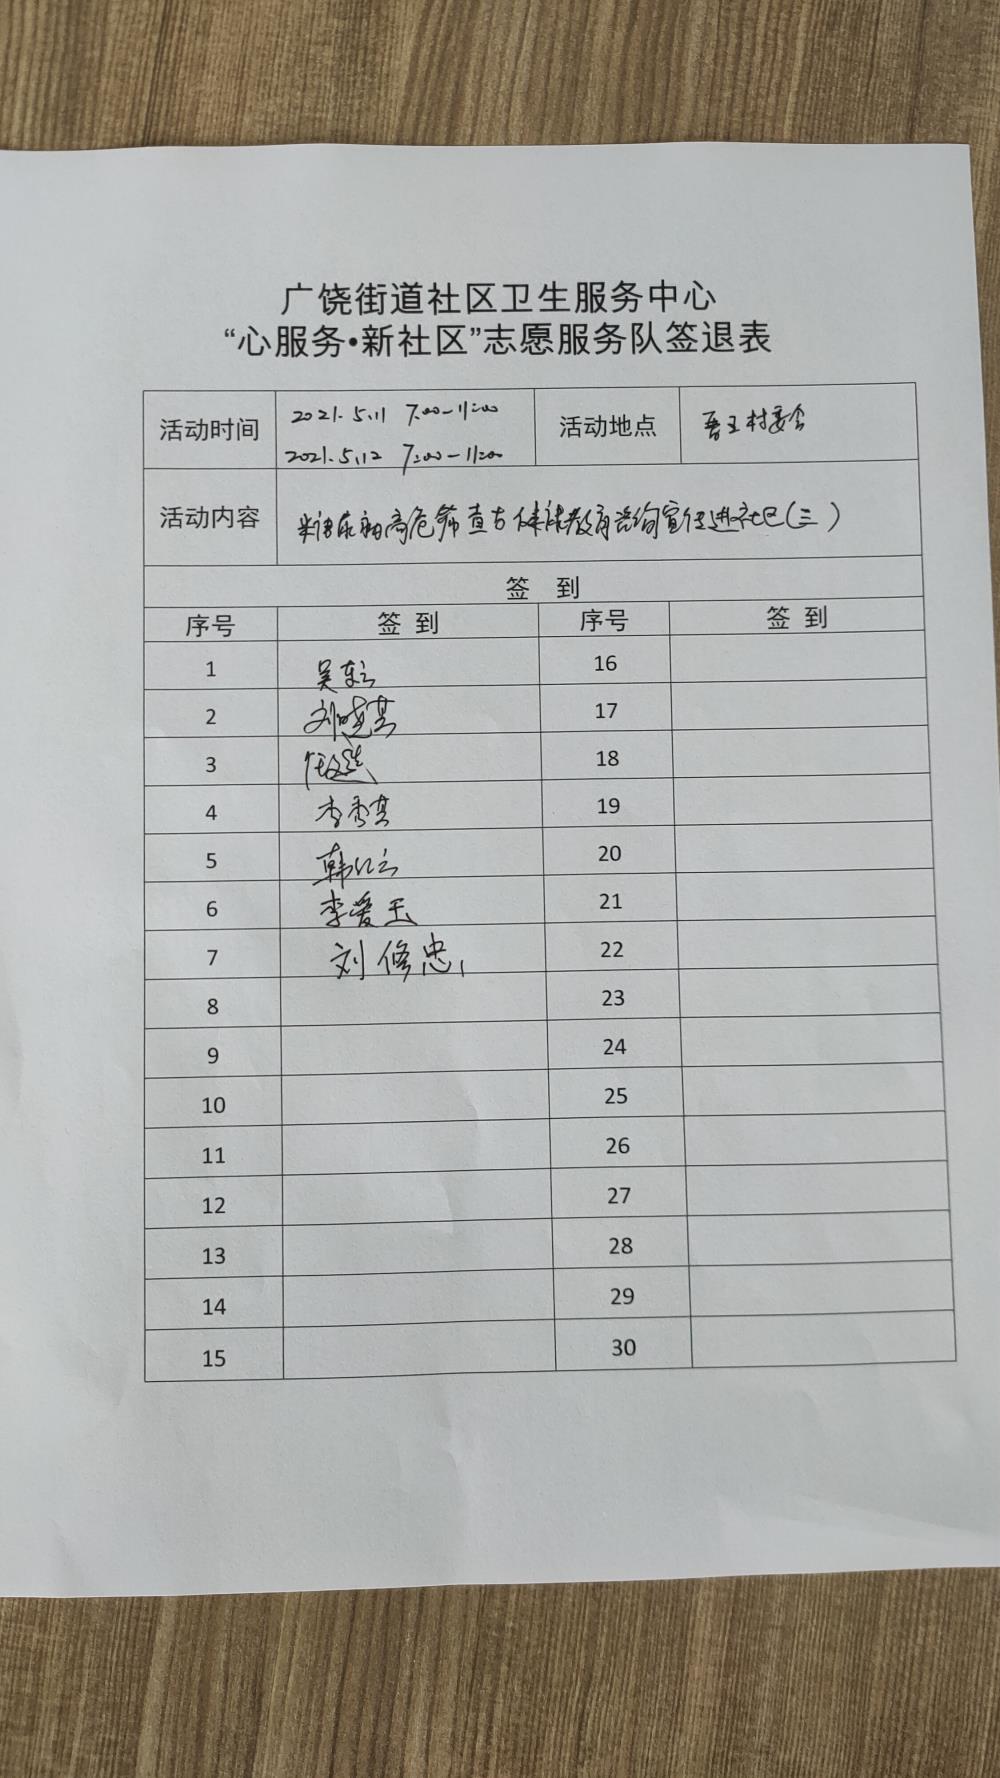 广饶街道社区卫生服务中心
“心服务•新社区”志愿服务队签退表
活动时间 2021.5.11 7:00-11:00 活动地点 村委会
2021.5.12 7:00-11:00
活动内容 糖尿病高危筛查与健康教育咨询宣传进社区(三)
签 到
序号 签 到 序号 签 到
1 16
2 刘晓英 17
3 18
4 李秀英 19
5 韩红云 20
6 李爱玉 21
7 刘修忠 22
8 23
9 24
10 25
11 26
12 27
13 28
14 29
15 30